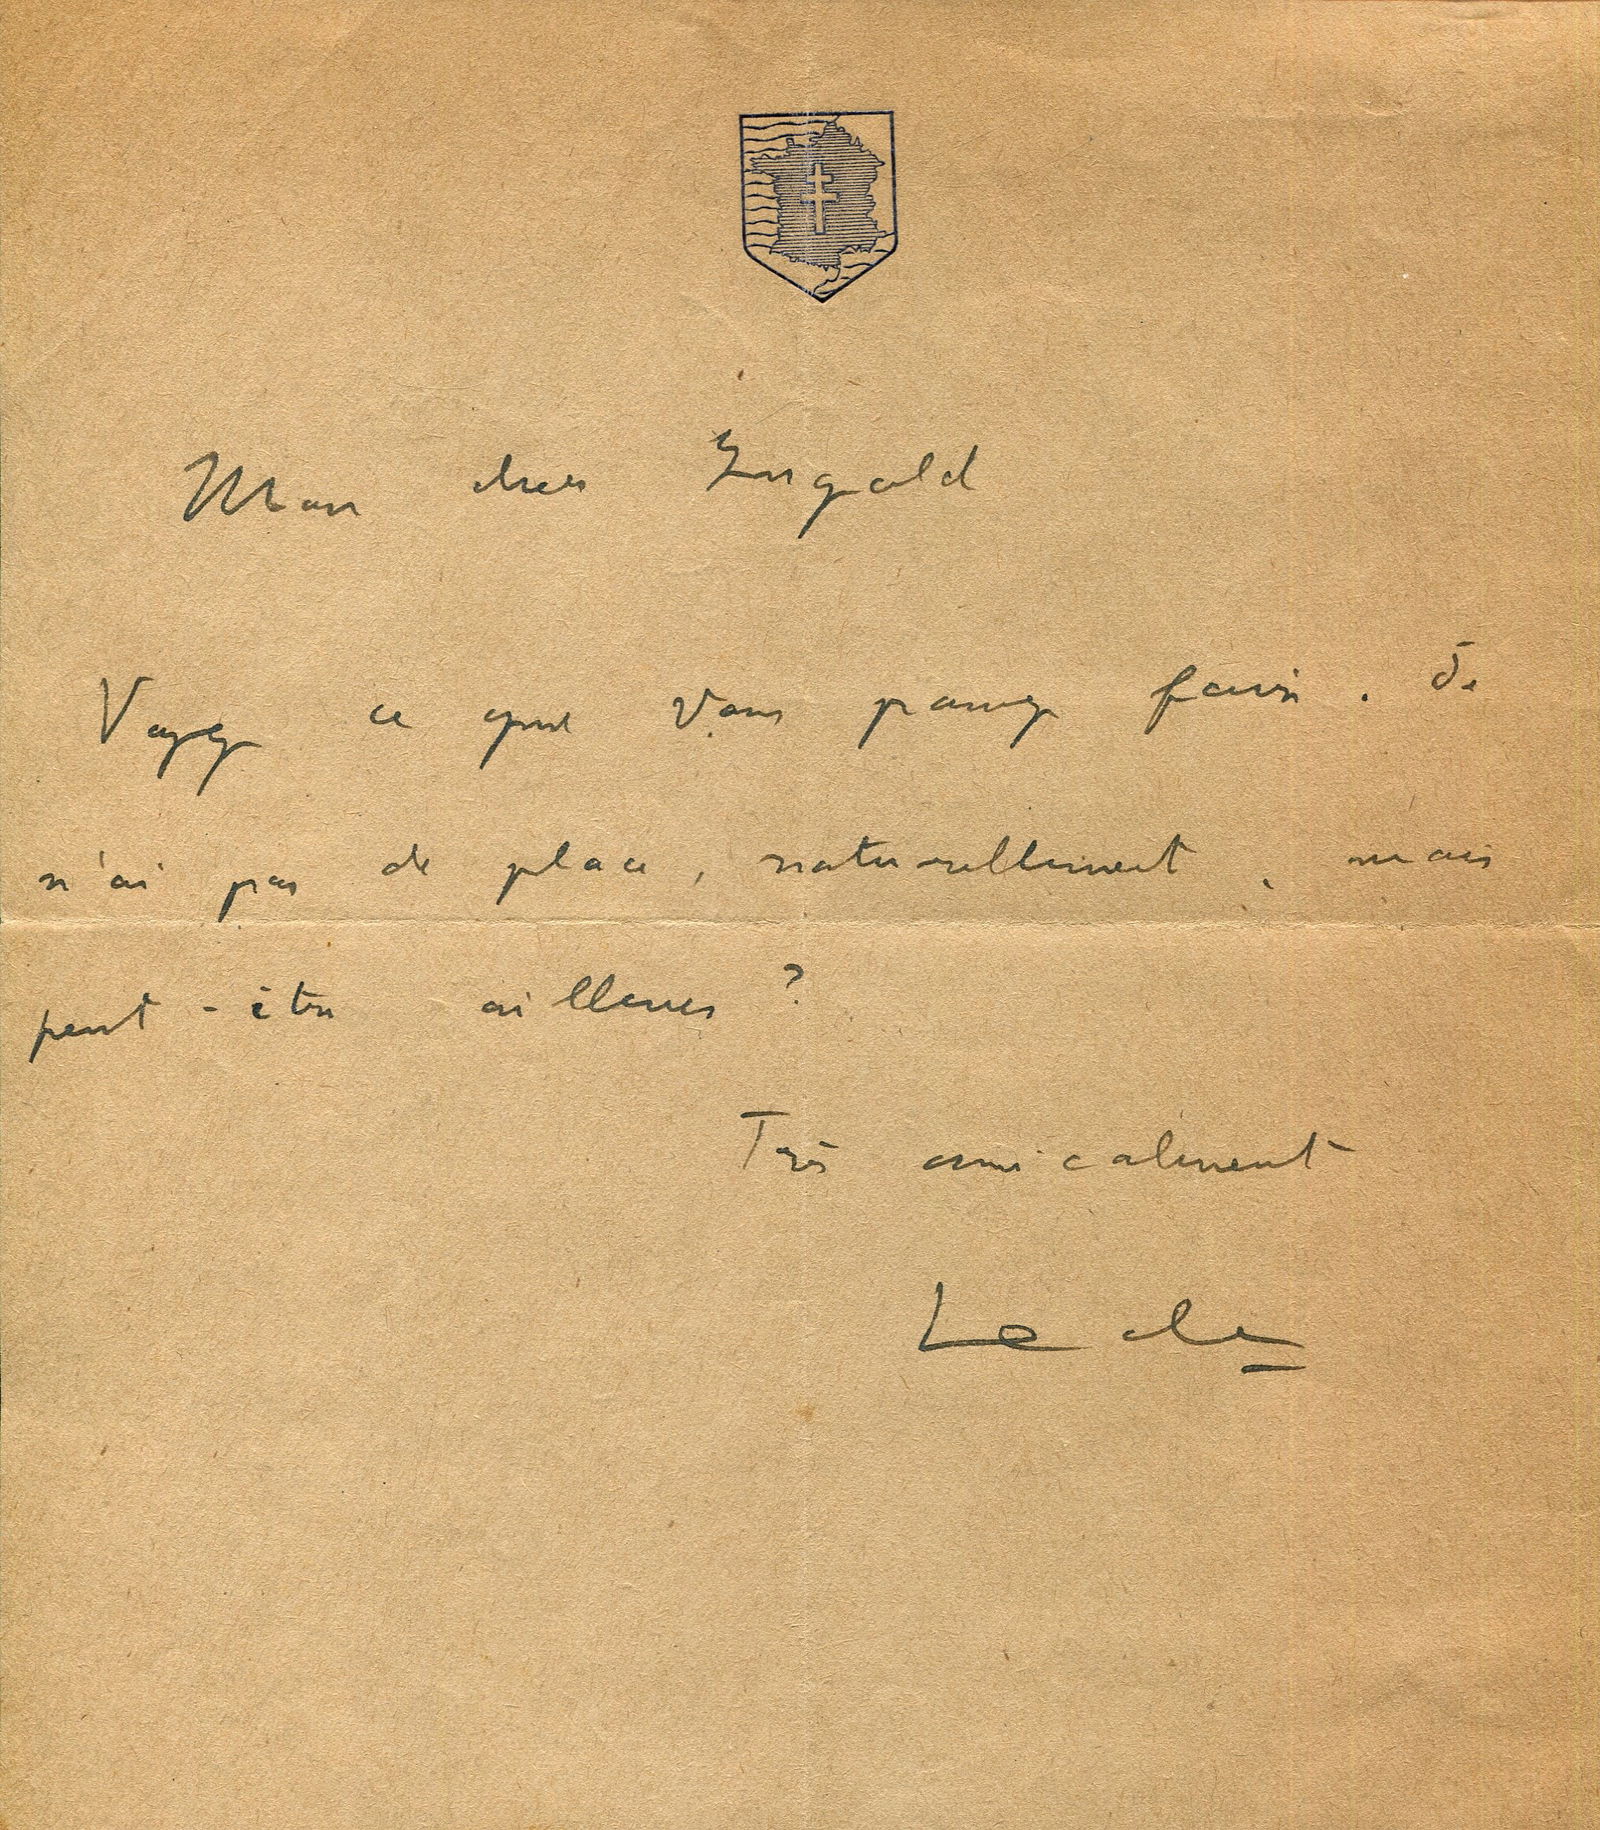 Mon cher Ingold
Voyez ce que vous pouvez faire. Je
n'ai pas de place, naturellement, mais
peut-être ailleurs ?
Très amicalement